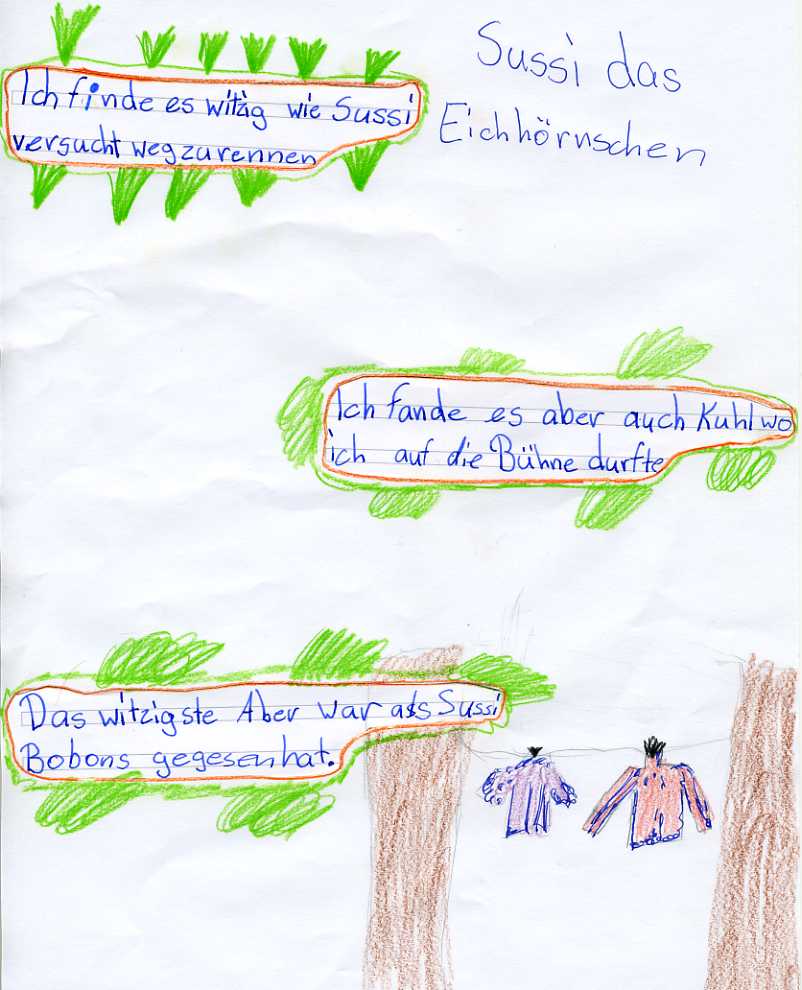 Sussi das
Eichhörnschen
Ich finde es witzig wie Sussi
versucht wegzurennen
Ich fande es aber auch Kuhl wo
ich auf die Bühne durfte
Das witzigste Aber war als Sussi
Bobons gegesen hat.